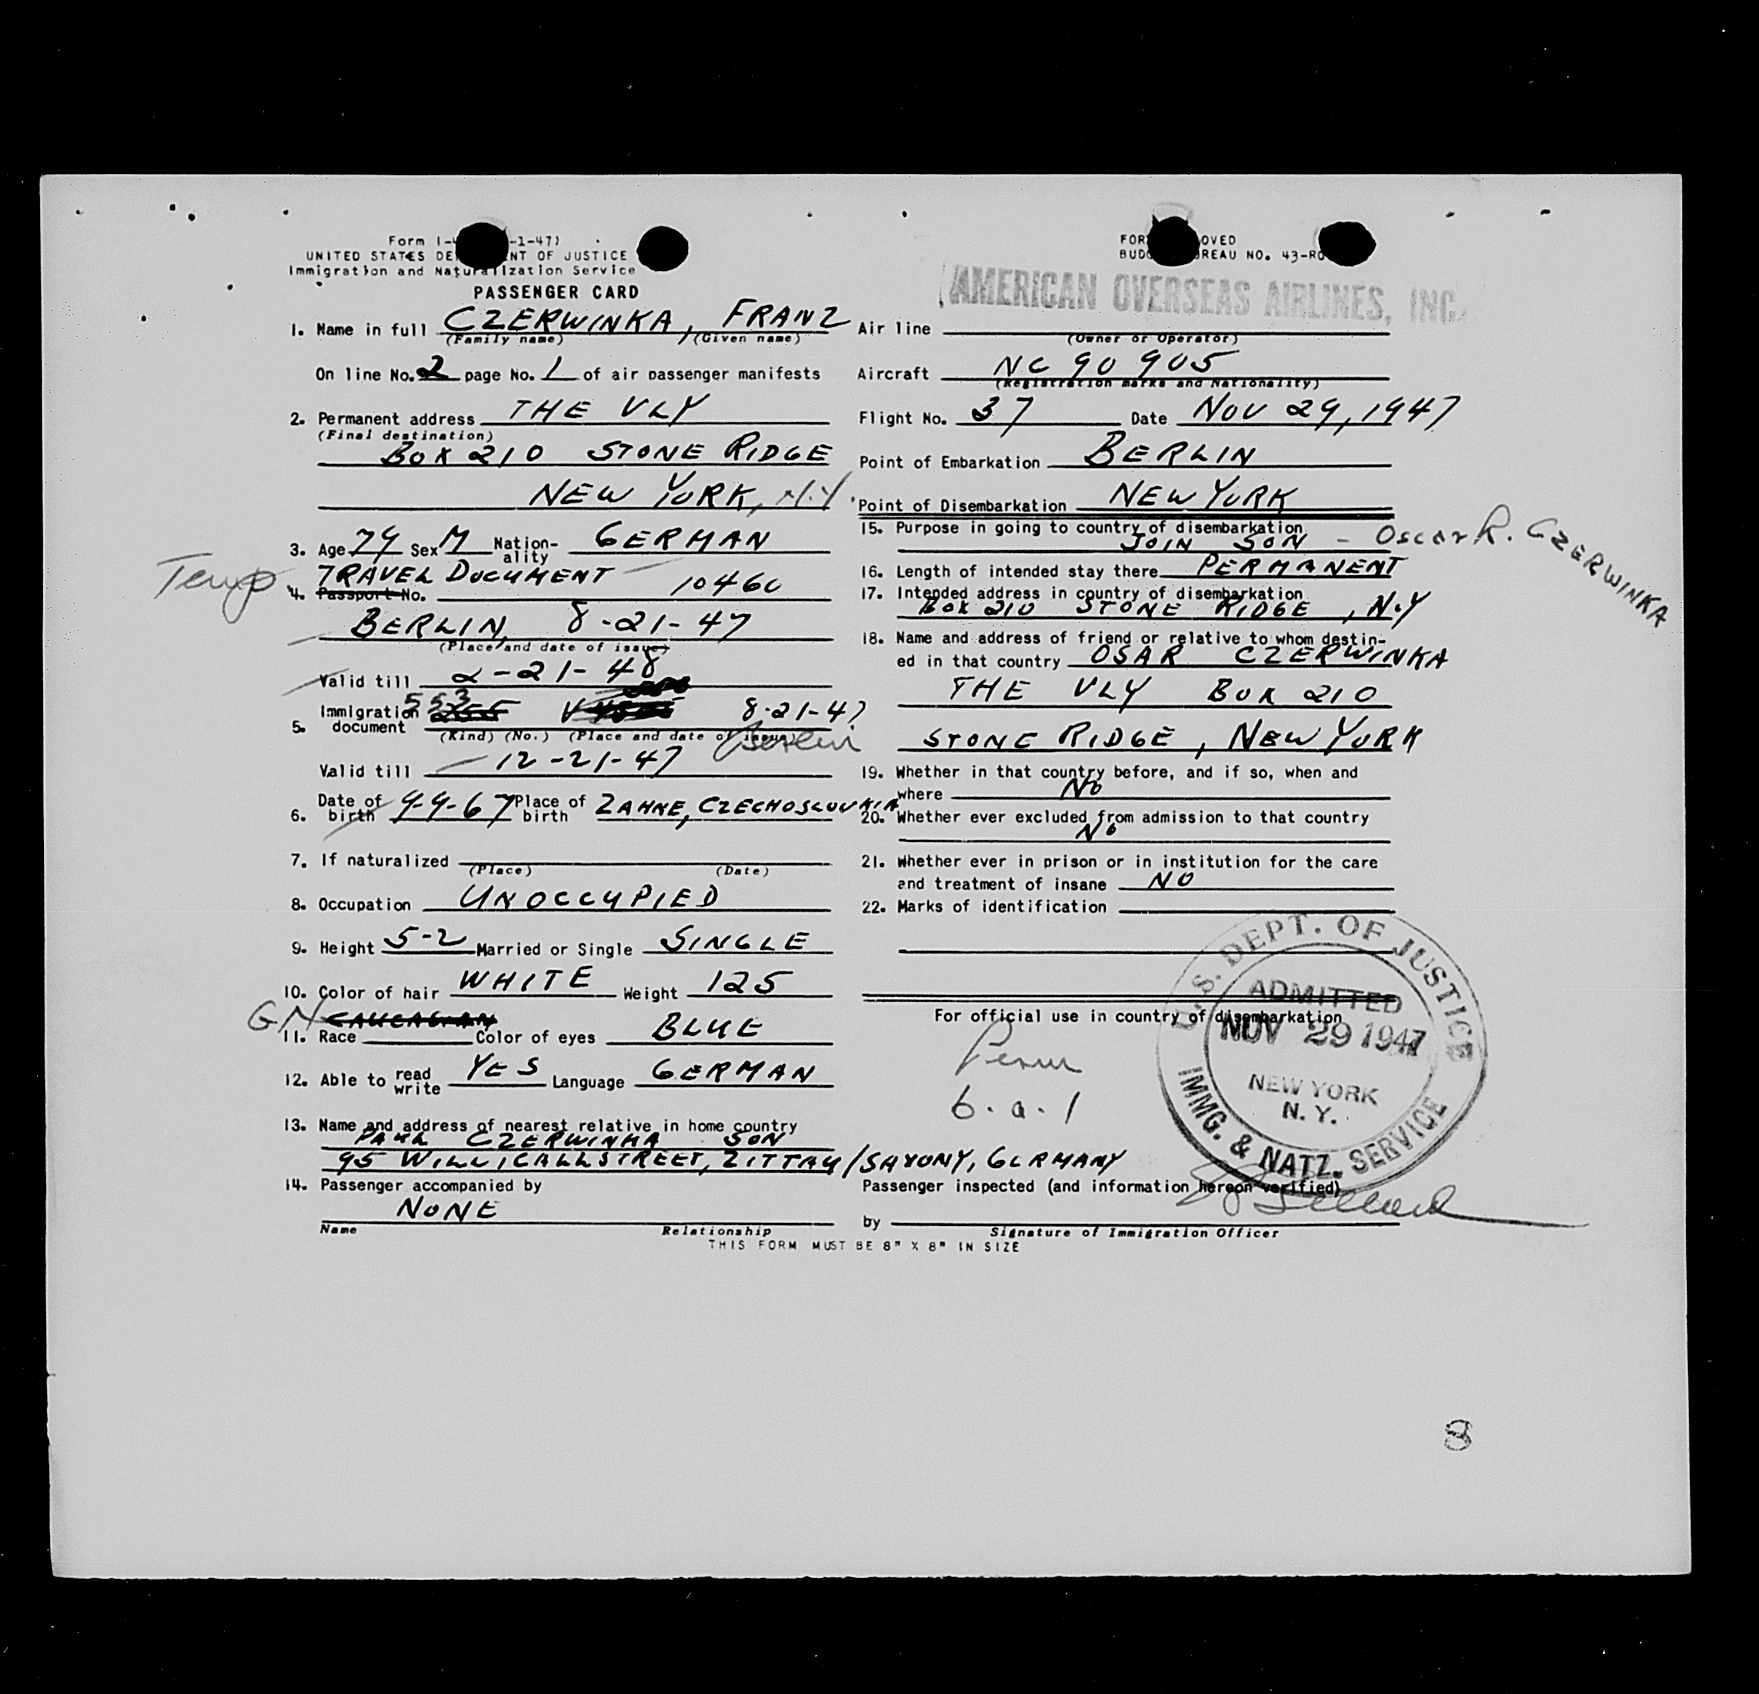 UNITED STATES DE NT OF JUSTICE
Immigration and Naturalization Service
PASSENGER CARD
1. Name in full CZERWINKA, FRANZ
(Family name) (Given name)
On line No. 2 page No. 1 of air passenger manifests
2. Permanent address THE VLY
(Final destination)
BOX 210 STONE RIDGE
NEW YORK, N.Y.
3. Age 74 Sex M Nation-ality GERMAN
Temp TRAVEL DOCUMENT
4. Passport No. 10460
BERLIN, 8-21-47
(Place and date of issue)
Valid till 2-21-48
5. Immigration document 553 8-21-47
(Kind) (No.) (Place and date of issue) Berlin
Valid till 12-21-47
6. Date of birth 4-4-67 Place of birth ZAHNE, CZECHOSLOVAKIA
7. If naturalized
(Place) (Date)
8. Occupation UNOCCUPIED
9. Height 5-2 Married or Single SINGLE
10. Color of hair WHITE Weight 125
GN CAUCASIAN
11. Race Color of eyes BLUE
12. Able to read write YES Language GERMAN
13. Name and address of nearest relative in home country
PAUL CZERWINKA SON
95 STREET, ZITTAU/SAXONY, GERMANY
14. Passenger accompanied by
NONE
Name Relationship
THIS FORM MUST BE 8" X 8" IN SIZE
AMERICAN OVERSEAS AIRLINES, INC.
Air line
(Owner or Operator)
Aircraft NC 90 905
(Registration marks and Nationality)
Flight No. 37 Date NOV 29, 1947
Point of Embarkation BERLIN
Point of Disembarkation NEW YORK
15. Purpose in going to country of disembarkation
JOIN SON - Oscar R. CZERWINKA
16. Length of intended stay there PERMANENT
17. Intended address in country of disembarkation
BOX 210 STONE RIDGE, N.Y
18. Name and address of friend or relative to whom destin-
ed in that country OSAR CZERWINKA
THE VLY BOX 210
STONE RIDGE, NEW YORK
19. Whether in that country before, and if so, when and
where NO
20. Whether ever excluded from admission to that country
NO
21. Whether ever in prison or in institution for the care
and treatment of insane NO
22. Marks of identification
For official use in country of disembarkation
Perm
6.a.1
U.S. DEPT. OF JUSTICE
ADMITTED
NOV 29 1947
NEW YORK
N.Y.
IMMG. & NATZ. SERVICE
Passenger inspected (and information hereon verified)
by
Signature of Immigration Officer
8